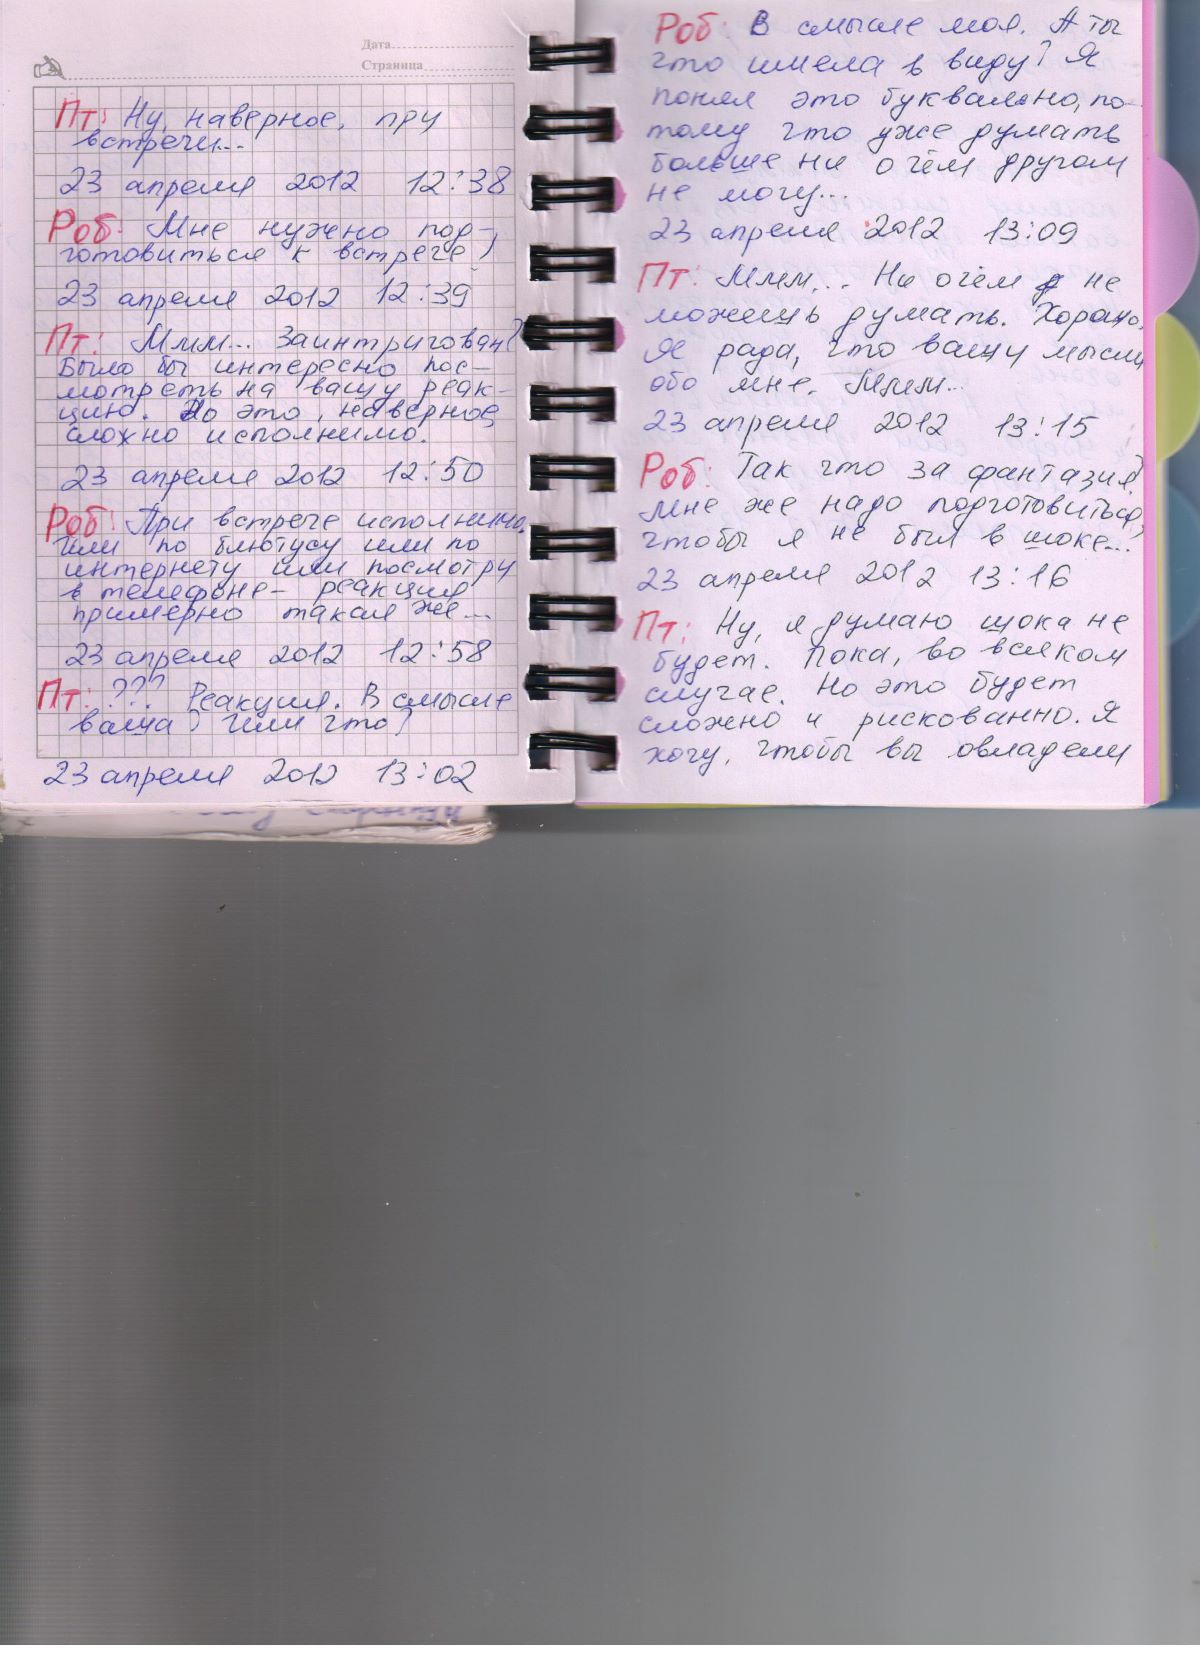 Дата
Страница
Пт: Ну, наверное, при
встречи...
23 апреля 2012 12:38
Роб: Мне нужно под-
готовиться к встрече)
23 апреля 2012 12:39
Пт: Ммм... Заинтригован?
Было бы интересно пос-
мотреть на вашу реак-
цию. Но это, наверное,
сложно исполнимо.
23 апреля 2012 12:50
Роб: При встрече исполнимо.
Или по блютусу или по
интернету или посмотру
в телефоне - реакция
примерно такая же...
23 апреля 2012 12:58
Пт: ??? Реакция. В смысле
ваша? Или что?
23 апреля 2012 13:02
Роб: В смысле моя. А ты
что имела в виду? Я
понял это буквально, по-
тому что уже думать
больше ни о чём другом
не могу...
23 апреля 2012 13:09
Пт: Ммм... Ни о чём не
можешь думать. Хорошо,
Я рада, что вашу мысли
обо мне. Ммм...
23 апреля 2012 13:15
Роб: Так что за фантазия?
Мне же надо подготовиться,
чтобы я не был в шоке...
23 апреля 2012 13:16
Пт: Ну, я думаю шока не
будет. Пока, во всяком
случае. Но это будет
сложно и рискованно. Я
хочу, чтобы вы овладели